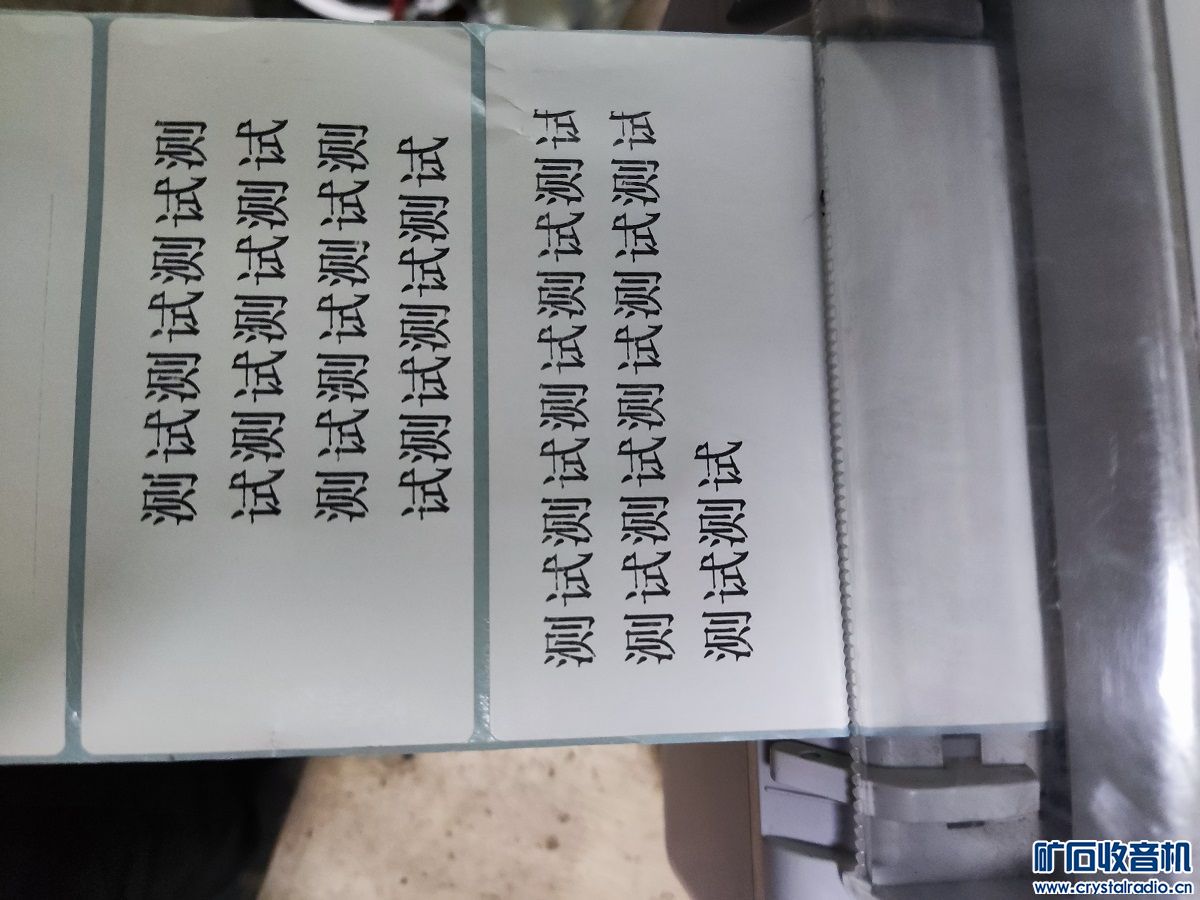 测试测试测试测
试测试测试测试
测试测试测试测
试测试测试测试
测试测试测试测试测试
测试测试测试测试测试
测试测试
矿石收音机
www.crystalradio.cn